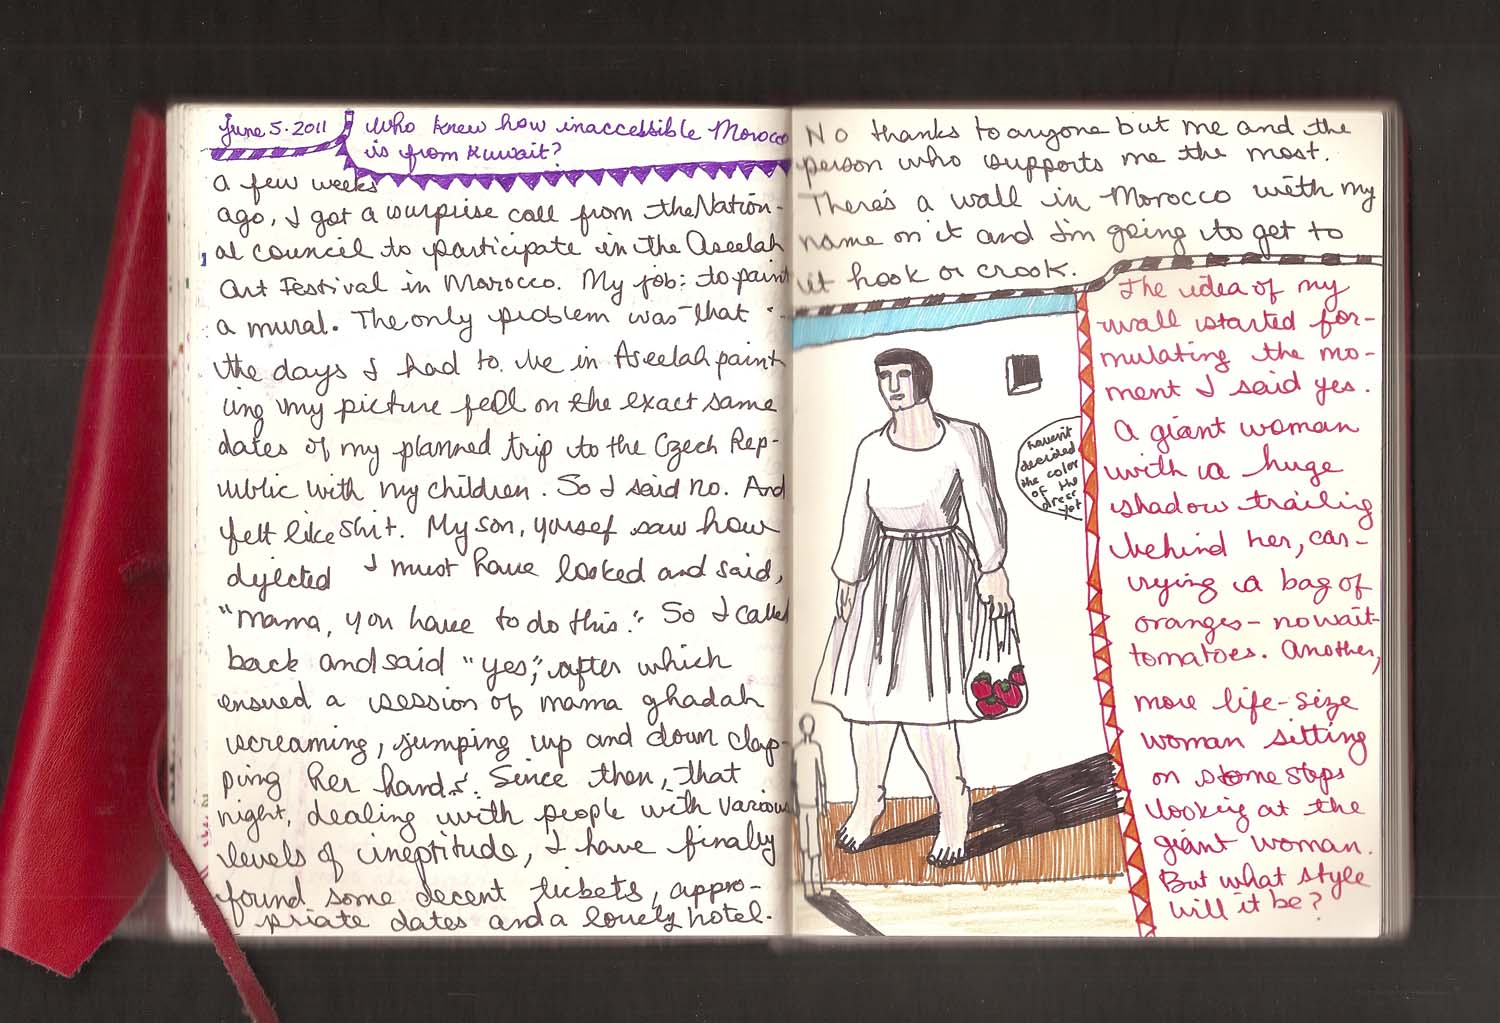 June 5. 2011
Who knew how inaccessible Morocco
is from Kuwait?
a few weeks
ago, I got a surprise call from the Nation-
al council to participate in the Aseelah
Art Festival in Morocco. My job: to paint
a mural. The only problem was that
the days I had to be in Aseelah paint
ing my picture fell on the exact same
dates of my planned trip to the Czech Rep-
ublic with my children. So I said no. And
felt like shit. My son, yousef saw how
dejected I must have looked and said,
"mama, you have to do this." So I called
back and said "yes", after which
ensued a session of mama ghadah
screaming, jumping up and down clap-
ping her hands. Since then, that
night, dealing with people with various
levels of ineptitude, I have finally
found some decent tickets, appro-
priate dates and a lovely hotel.
No thanks to anyone but me and the
person who supports me the most.
There's a wall in Morocco with my
name on it and I'm going to get to
it hook or crook.
The idea of my
wall started for-
mulating the mo-
ment I said yes.
A giant woman
with a huge
shadow trailing
behind her, car-
rying a bag of
oranges - no wait-
tomatoes. Another,
more life-size
woman sitting
on stone steps
looking at the
giant woman.
But what style
will it be?
haven't
decided
the color
of the
dress
yet